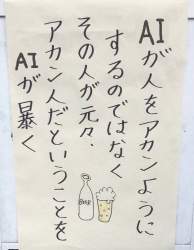 AIが人をアカンように
するのではなく
その人が元々、
アカン人だということを
AIが暴く
BEER